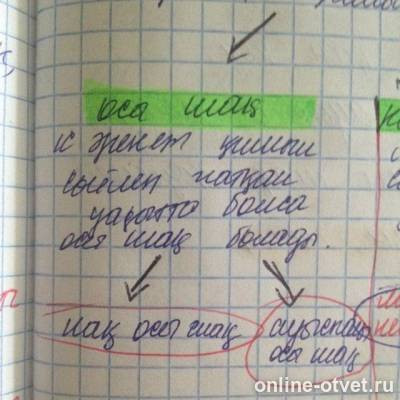 осы шақ
іс әрекет қимыл
сөйлеп
уақытта болса
осы шақ болады.
нақ осы шақ
ауыспалы
осы шақ
online-otvet.ru